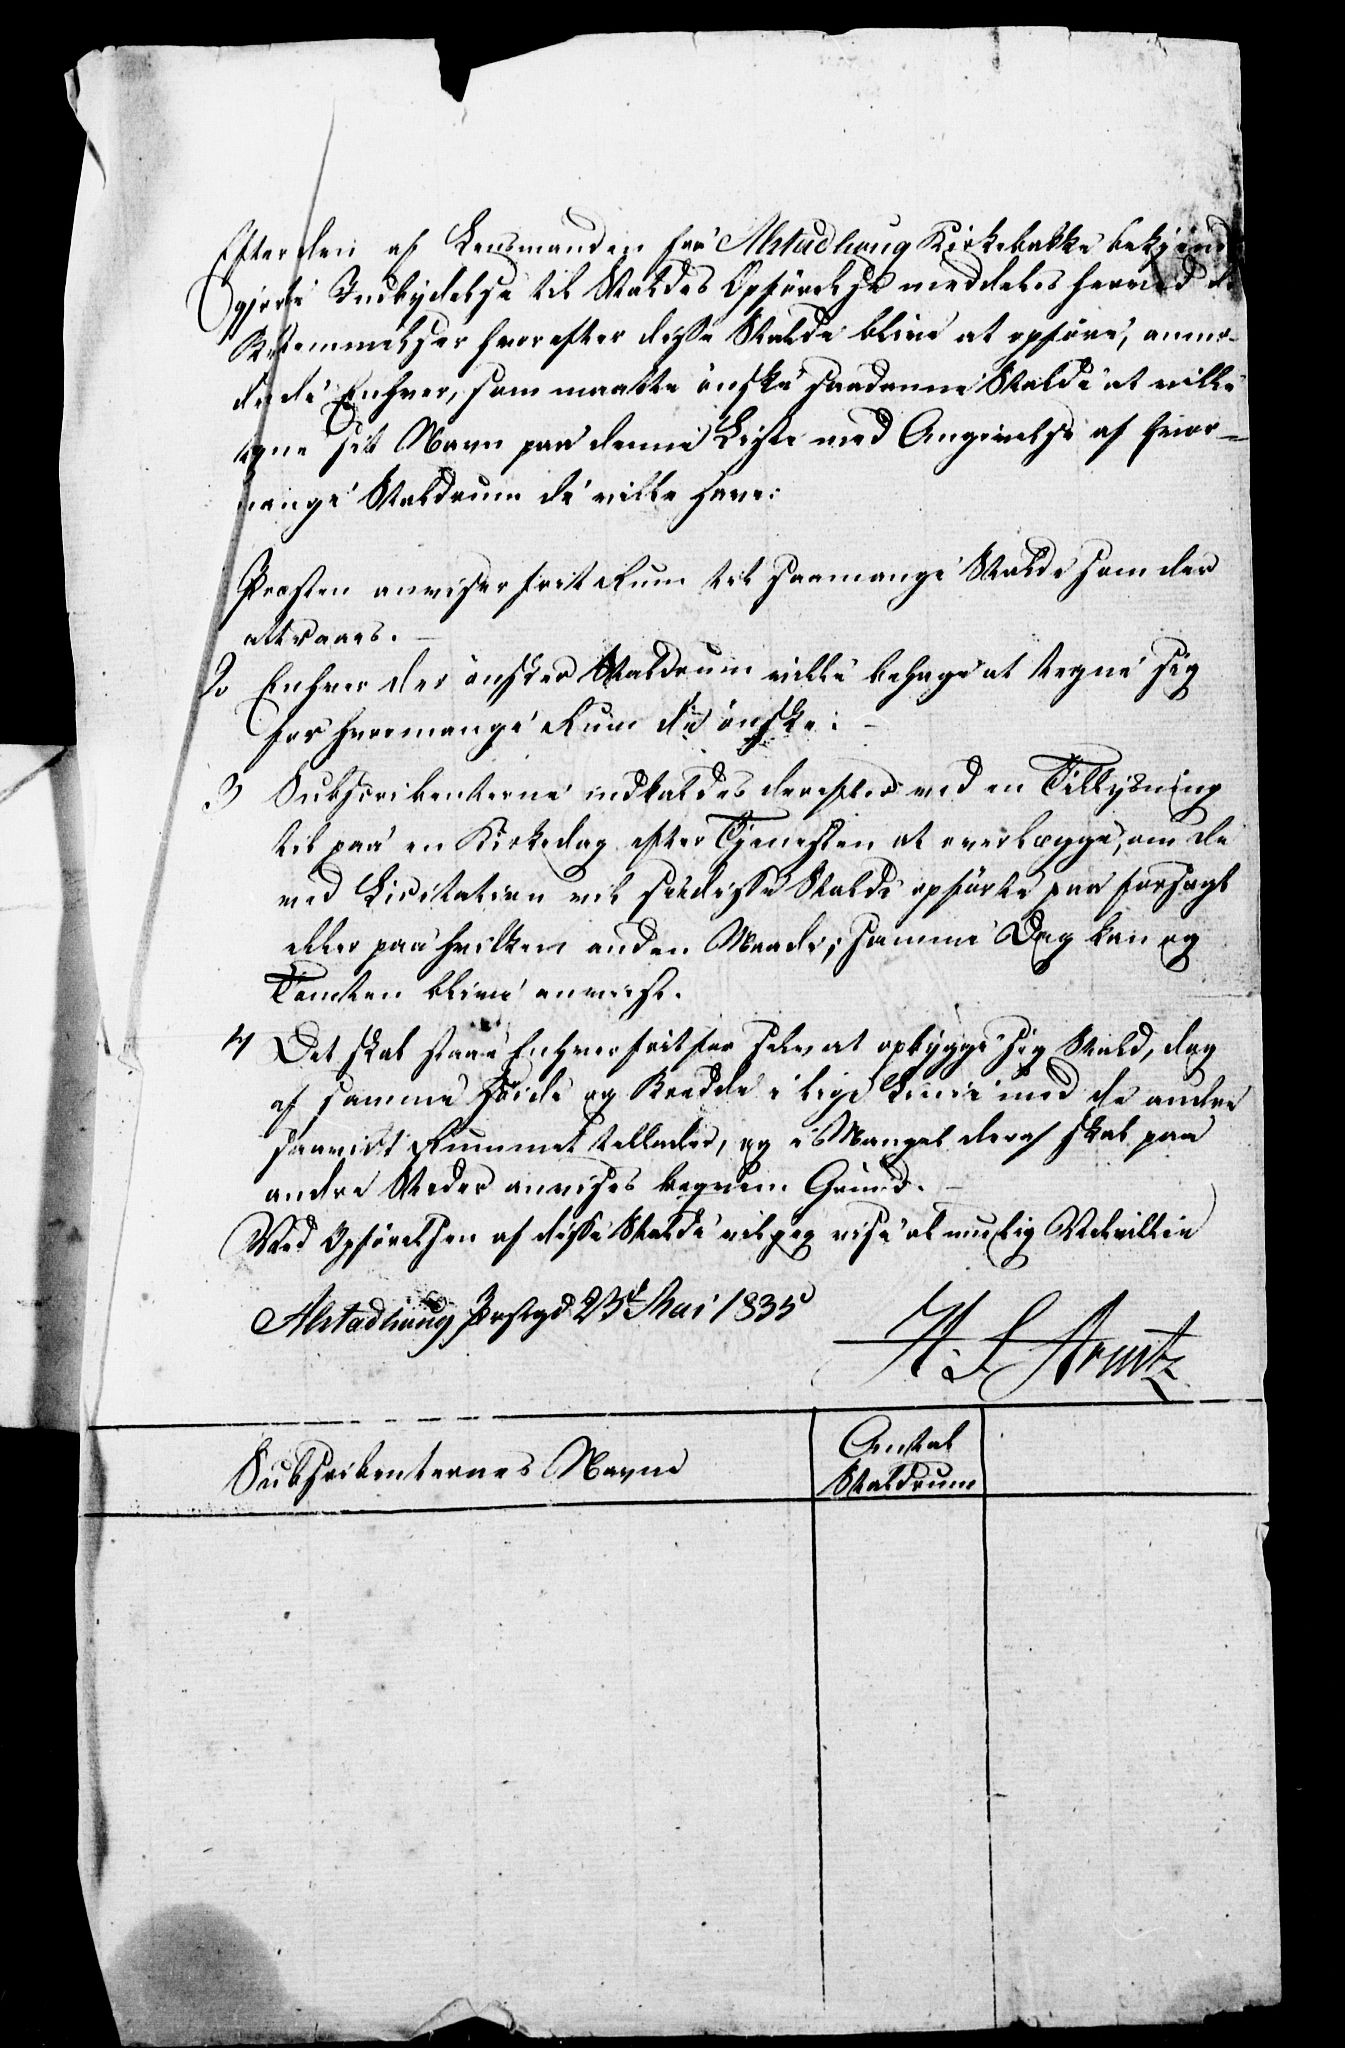 Efter den af Lensmanden fra Alstadhoug Kirkebakke bekjend
gjorte Indbydelse til Staldes Opførelse meddeles herved de
Bestemmelser hvorefter disse Stalde blive at opføre, anmo-
dende Enhver, som maatte ønske saadanne Stalde at ville
tegne sit Navn paa denne Liste med Angivelse af hvor-
mange Staldrum de ville have:
Præsten anviser frit Rum til saamange Stalde som der
attraaes. -
2 Enhver der ønsker Staldrum ville behage at tegne sig
for hvormange Rum de ønske: -
3 Subscribenterne indkaldes derefter ved en Tillysning
til paa en Kirkedag efter Tjenesten at overlægge, om de
ved Licitation vil see disse Stalde opførte paa forsagt
eller paa hvilken anden Maade; samme Dag kan og
Tomten blive anviist.
4 Det skal staae Enhver frit for selv at opbygge sig Stald, dog
af samme Høide og Bredde i lige Linie med de andre
saavidt Rummet tillader, og i Mangel deraf skal paa
andre Steder anvises beqvem Grund. -
Ved Opførelsen af disse Stalde vil jeg vise al muelig Velvillie
Alstadhoug Præstgd 23d Mai 1835
H. L. Arntz
Subscribenternes Navne
Antal
Staldrum